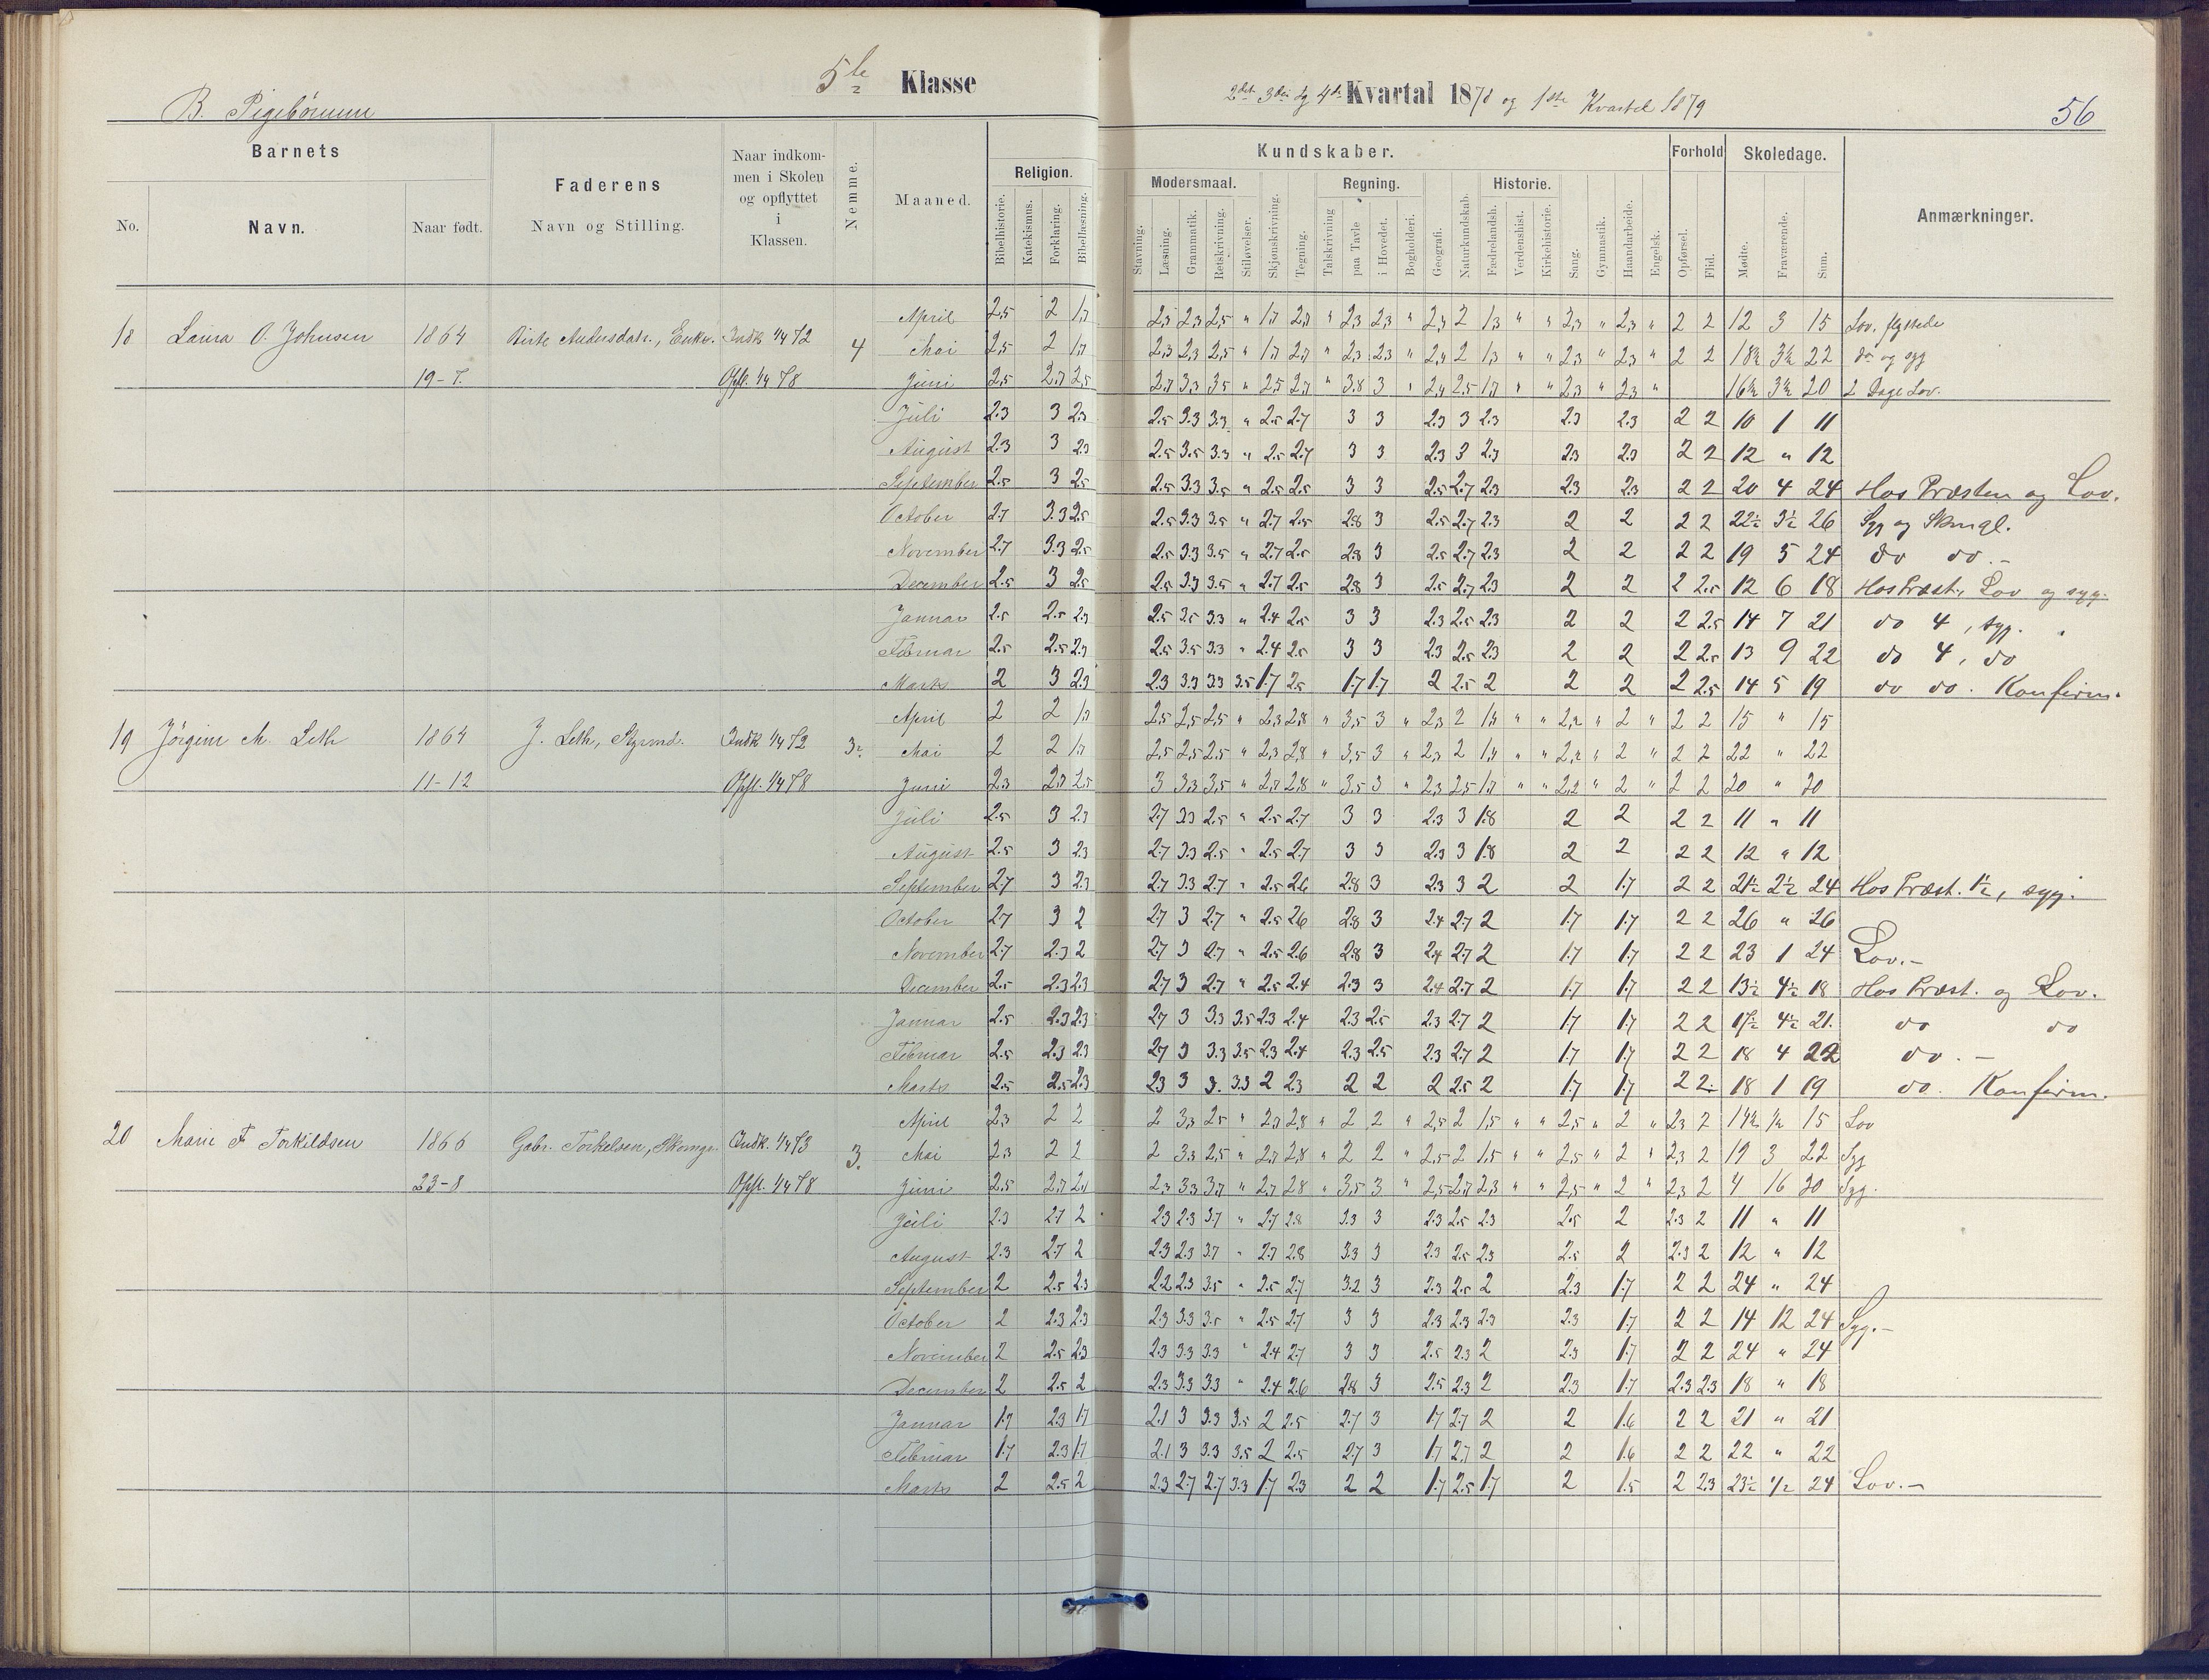 5te Klasse
2det 3die og 4de Kvartal 1878 og 1ste Kvartal 1879
B. Pigebørnene
56
Barnets
No.
Navn.
Naar født.
Faderens
Navn og Stilling.
Naar indkom-
men i Skolen
og opflyttet
i
Klassen.
Nemme.
Maaned.
Kundskaber.
Religion.
Bibelhistorie.
Katekismus.
Forklaring.
Bibellæsning.
Modersmaal.
Stavning.
Læsning.
Grammatik.
Retskrivning.
Stiløvelser.
Skjønskrivning.
Tegning.
Regning.
Talskrivning
paa Tavle
i Hovedet.
Bogholderi.
Geografi.
Naturkundskab.
Historie.
Fædrelandsh.
Verdenshist.
Kirkehistorie.
Sang.
Gymnastik.
Haandarbeide.
Engelsk.
Forhold
Opførsel.
Flid.
Skoledage.
Mødte.
Fraværende.
Sum.
Anmærkninger.
18 Laura O. Johnsen 1864 19-7. Birte Andersdatr., Enke. Indk 1/4 72 Opfl. 1/4 78 4
April 2,5 2 1,7 2 2 12 3 15 Lov,
Mai 2,5 2 1,7 2 2 18½ 3½ 22 do og syg
Juni 2,5 2,7 2,5 16½ 3½ 20 2 Dage Lov.
Juli 2.3 3 2.3 2.5 3.3 3.3 " 2.5 2.7 3 3 2.3 3 2.3 2.3 2.3 2 2 10 1 11
August 2.3 3 2.3 2.5 3.5 3.3 " 2.5 2.7 3 3 2.3 3 2.3 2.3 2.3 2 2 12 " 12
September 2.5 3 2.5 2.5 3.3 3.5 " 2.5 2.5 3 3 2.5 2.7 2.3 2.3 2.3 2 2 20 4 24 Hos Præsten og Lov.
October 2.7 3.3 2.5 2.5 3.3 3.5 " 2.7 2.5 2.8 3 2.5 2.7 2.3 2 2 2 2 22½ 3½ 26 Syg og
November 2.7 3.3 2.5 2.5 3.3 3.5 " 2.7 2.5 2.8 3 2.5 2.7 2.3 2 2 2 2 19 5 24 do do.-
December 2.5 3 2.5 2.5 3.3 3.5 " 2.7 2.5 2.8 3 2.5 2.7 2.3 2 2 2 2.5 12 6 18 Hos Præst., Lov og syg.
Januar 2.5 2.5 2.3 2.5 3.5 3.3 " 2.4 2.5 3 3 2.3 2.5 2.3 2 2 2 2.5 14 7 21 do 4, syg.
Februar 2.5 2.5 2.3 2.5 3.5 3.3 " 2.4 2.5 3 3 2.3 2.5 2.3 2 2 2 2.5 13 9 22 do 4, do
Marts 2 3 2.3 2.3 3.3 3.3 3.5 1.7 2.5 1.7 1.7 2 2.5 2 2 2 2 2.5 14 5 19 do do. Konfirm.
19 Jörgine M. Leth 1864 11-12 J. Leth, Styrmd. Indk 1/4 72 Opfl. 1/4 78
April 2 2 1,7 2 2 15 " 15
Mai 2 2 1,7 2 2 22 " 22
Juni 2,3 2,7 2,5 2 2 20 " 20
Juli 2.5 3 2.3 2.7 3.3 2.5 " 2.5 2.7 3 3 2.3 3 1.8 2 2 2 2 11 " 11
August 2.5 3 2.3 2.7 3.3 2.5 " 2.5 2.7 3 3 2.3 3 1.8 2 2 2 2 12 " 12
September 2.7 3 2.3 2.7 3.3 2.7 " 2.5 2.6 2.8 3 2.3 3 2 2 1.7 2 2 21½ 2½ 24 Hos Præst. 1½, syg.
October 2.7 3 2 2.7 3 2.7 " 2.5 2.6 2.8 3 2.4 2.7 2 1.7 1.7 2 2 26 " 26
November 2.7 2.3 2 2.7 3 2.7 " 2.5 2.6 2.8 3 2.4 2.7 2 1.7 1.7 2 2 23 1 24 Lov.-
December 2.5 2.3 2.3 2.7 3 2.7 " 2.5 2.4 2.3 3 2.4 2.7 2 1.7 1.7 2 2 13½ 4½ 18 Hos Præst. og Lov.
Januar 2.5 2.3 2.3 2.7 3 3.3 3.5 2.3 2.4 2.3 2.5 2.3 2.7 2 1.7 1.7 2 2 17½ 4½ 21. do do
Februar 2.5 2.3 2.3 2.7 3 3.3 3.5 2.3 2.4 2.3 2.5 2.3 2.7 2 1.7 1.7 2 2 18 4 22 do.-
Marts 2.5 2.5 2.3 2.3 3 3. 3.3 2 2.3 2 2 2 2.5 2 1.7 1.7 2 2 18 1 19 do. Konfirm.
20 Marie F. Torkildsen 1866 23-8 Gabr. Torkelsen, Skomgr. Indk. 1/4 73 Opfl. 1/4 78 3.
April 2,3 2 2 2,3 2 14½ ½ 15 Lov
Mai 2,3 2 2 2,3 2 19 3 22 Syg
Juni 2,5 2,3 2 4 16 20 Syg.
Juli 2.3 2.7 2 2.3 2.3 3.7 " 2.7 2.8 3.3 3 2.3 2.5 2.3 2.5 2 2.3 2 11 " 11
August 2.3 2.7 2 2.3 2.3 3.7 " 2.7 2.8 3.3 3 2.3 2.5 2.3 2.5 2 2.3 2 12 " 12
September 2 2.5 2.3 2.2 2.3 3.5 " 2.5 2.7 3.2 3 2.3 2.5 2 2.3 1.7 2 2 24 " 24
October 2 2.3 2.3 2.3 3.3 3.5 " 2.5 2.7 3 3 2.3 2.3 2.3 2.3 1.7 2 2 14 12 24 Syg.-
November 2 2.5 2.3 2.3 3.3 3.3 " 2.4 2.7 3 3 2.5 2.3 2 2.3 1.7 2 2 24 " 24
December 2 2.5 2 2.3 3.3 3.3 " 2.4 2.6 2.8 3 2.5 2.3 2 2.3 1.7 2.3 2.3 18 " 18
Januar 1.7 2.3 1.7 2.1 3 3.3 3.5 2 2.5 2.7 3 1.7 2.7 2 2 1.6 2 2 21 " 21
Februar 1.7 2.3 1.7 2.1 3 3.3 3.5 2 2.5 2.7 3 1.7 2.7 2 2 1.6 2 2 22 " 22
Marts 2 2.5 2 2.3 2.7 2.7 3.3 1.7 2.3 2 2 1.7 2.5 1.7 2 1.5 2 2.3 23½ ½ 24 Lov.-